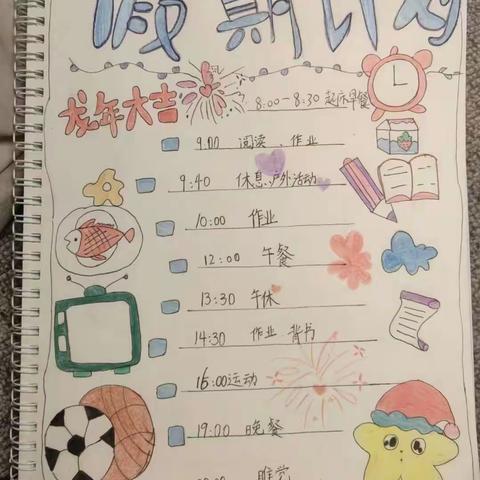 假期计划
龙年大吉
8:00-8:30 起床早餐
9:00 阅读、作业
9:40 休息、户外活动
10:00 作业
12:00 午餐
13:30 午休
14:30 作业 背书
16:00 运动
19:00 晚餐
睡觉